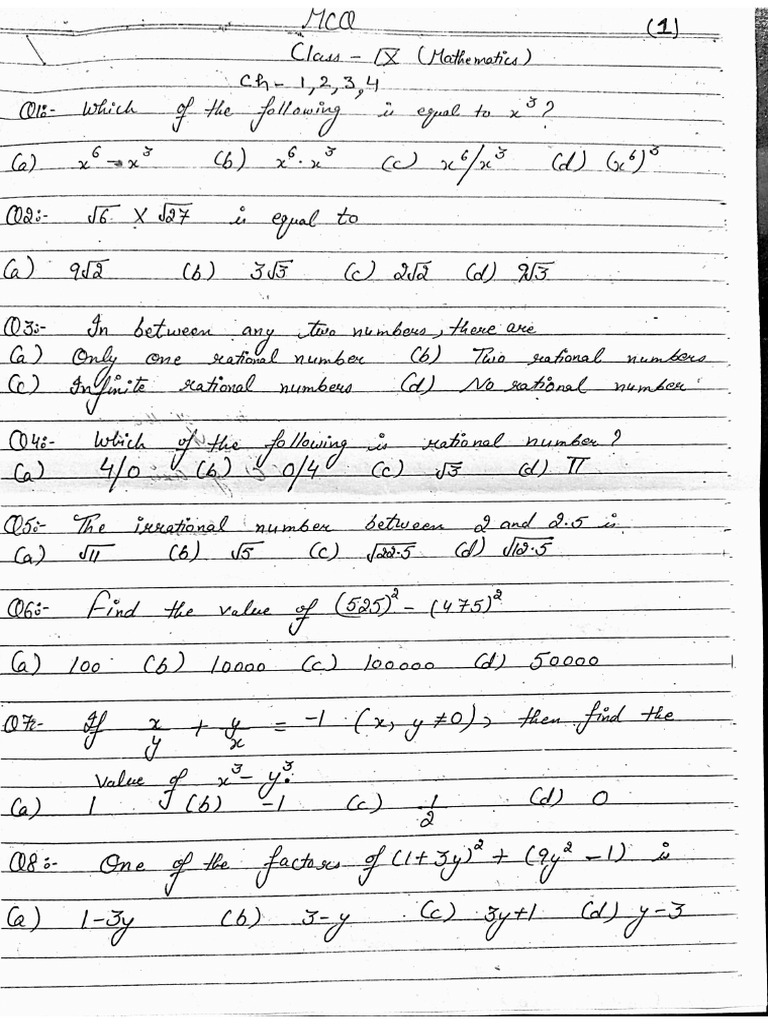 MCQ (1)
Class - IX (Mathematics)
Ch- 1,2,3,4
Q1:- Which of the following is equal to x³?
(a) x⁶ - x³ (b) x⁶ · x³ (c) x⁶/x³ (d) (x⁶)³
Q2:- √6 × √27 is equal to
(a) 9√2 (b) 3√3 (c) 2√2 (d) 9√3
Q3:- In between any two numbers, there are
(a) Only one rational number (b) Two rational numbers
(c) Infinite rational numbers (d) No rational number
Q4:- Which of the following is rational number?
(a) 4/0 (b) 0/4 (c) √3 (d) π
Q5:- The irrational number between 2 and 2.5 is
(a) √11 (b) √5 (c) √22.5 (d) √12.5
Q6:- Find the value of (525)² - (475)²
(a) 100 (b) 10000 (c) 100000 (d) 50000
Q7:- If x/y + y/x = -1 (x, y ≠ 0), then find the
value of x³ - y³.
(a) 1 (b) -1 (c) 1/2 (d) 0
Q8:- One of the factors of (1+3y)² + (9y² - 1) is
(a) 1-3y (b) 3-y (c) 3y+1 (d) y-3